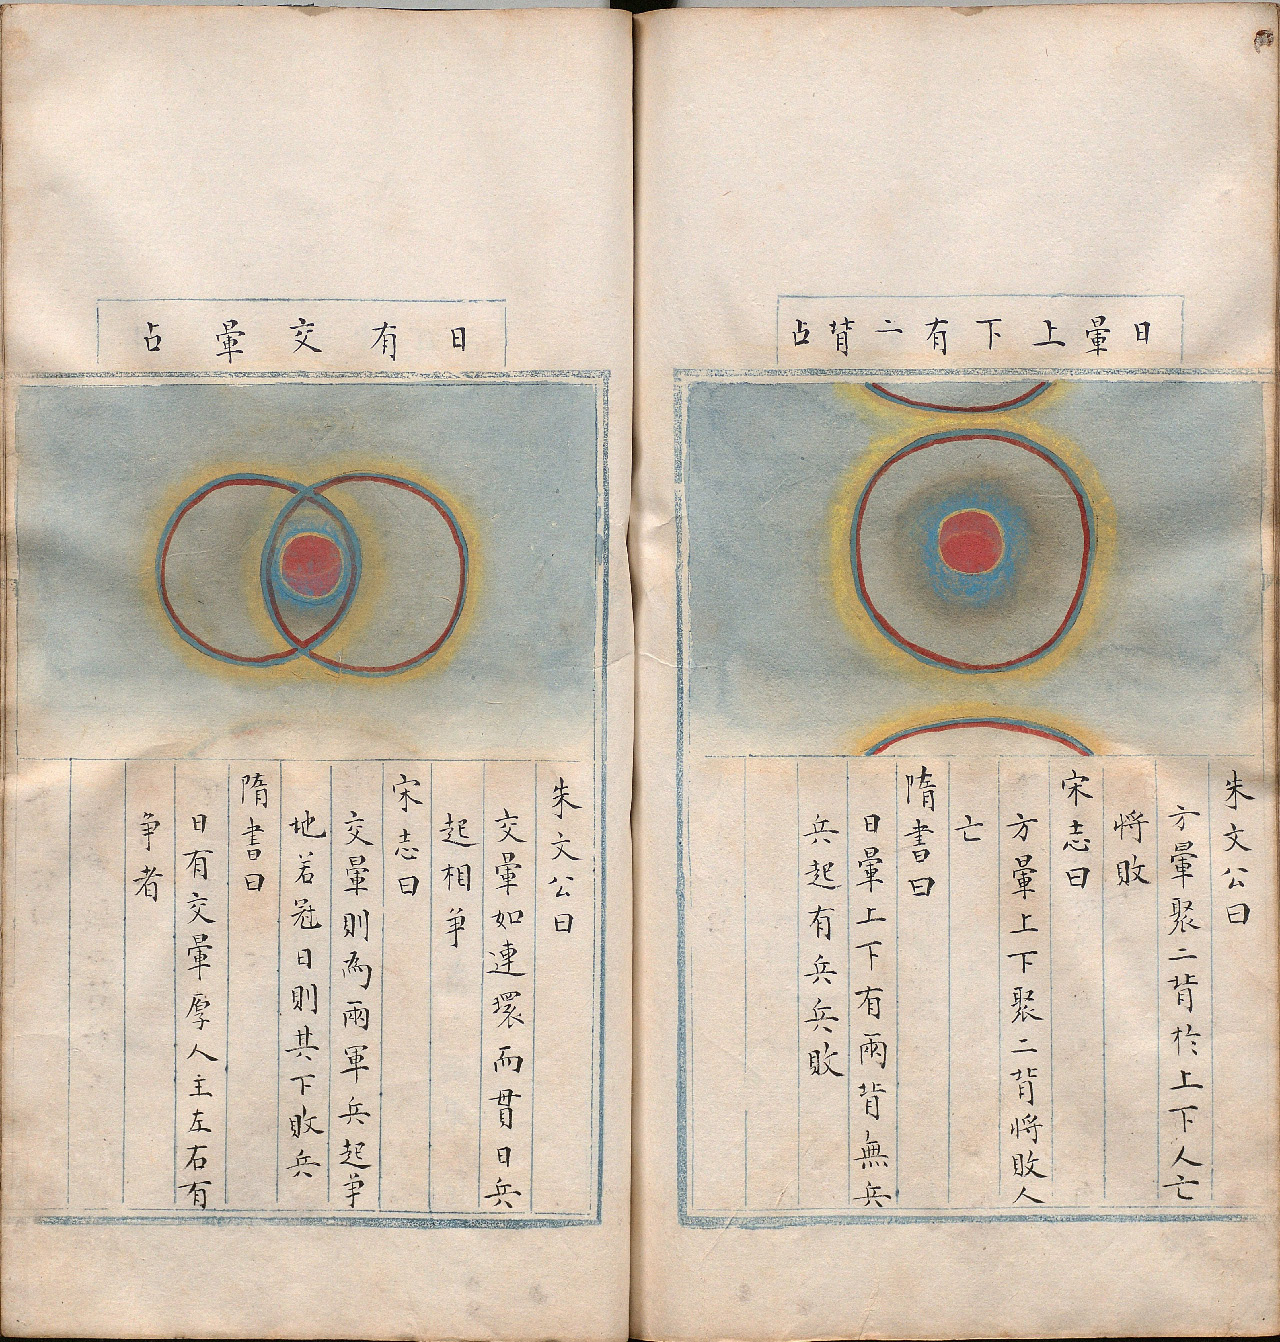 日暈上下有二背占
朱文公曰
方暈聚二背於上下人亡
將敗
宋志曰
方暈上下聚二背將敗人
亡
隋書曰
日暈上下有兩背無兵
兵起有兵兵敗
日有交暈占
朱文公曰
交暈如連環而貫日兵
起相爭
宋志曰
交暈則為兩軍兵起爭
地若冠日則其下敗兵
隋書曰
日有交暈厚人主左右有
争者